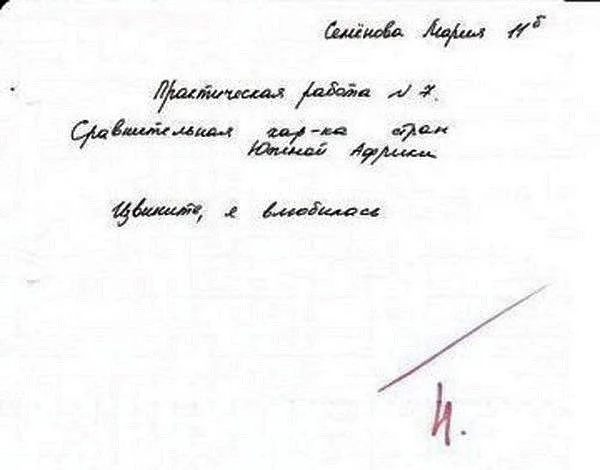 Семёнова Мария 11б
Практическая работа N 7.
Сравнительная хар-ка стран
Южной Африки
Извините, я влюбилась
И.